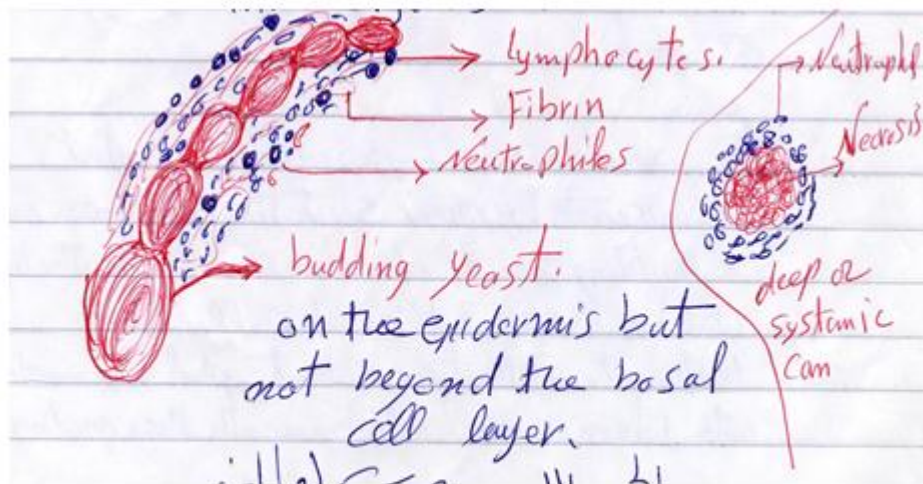 Lymphocytes.
Fibrin
Neutrophiles
budding yeast.
on the epidermis but
not beyond the basal
cell layer.
Neutrophl
Necrosis
deep or
systamic
can